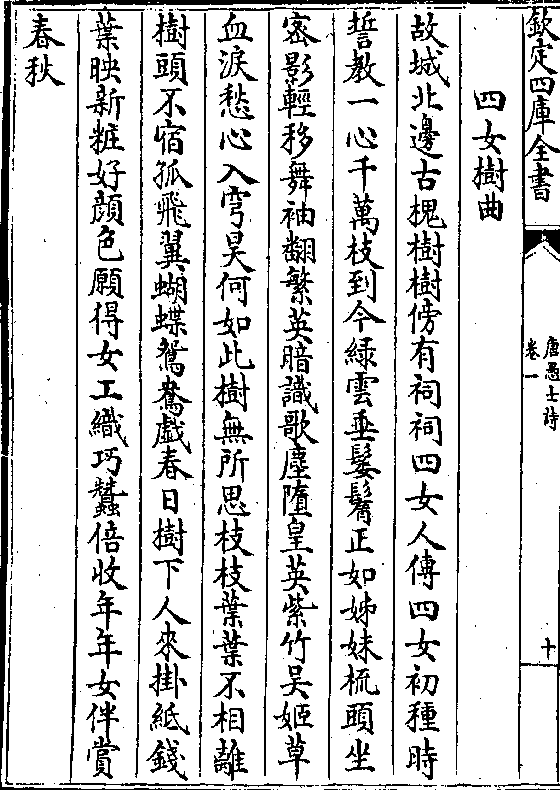 欽定四庫全書
唐愚士詩
卷一
十
四女樹曲
故城北邊古槐樹樹傍有祠祠四女人傳四女初種時
誓教一心千萬枝到今緑雲垂髮鬌正如姊妹梳頭坐
宻影輕移舞袖翻繁英暗識歌塵墮皇英紫竹吳姬草
血淚愁心入穹昊何如此樹無所思枝枝葉葉不相離
樹頭不宿孤飛翼蝴蝶鴛鴦戲春日樹下人來掛紙錢
葉映新粧好顔色願得女工織巧蠶倍收年年女伴賞
春秋